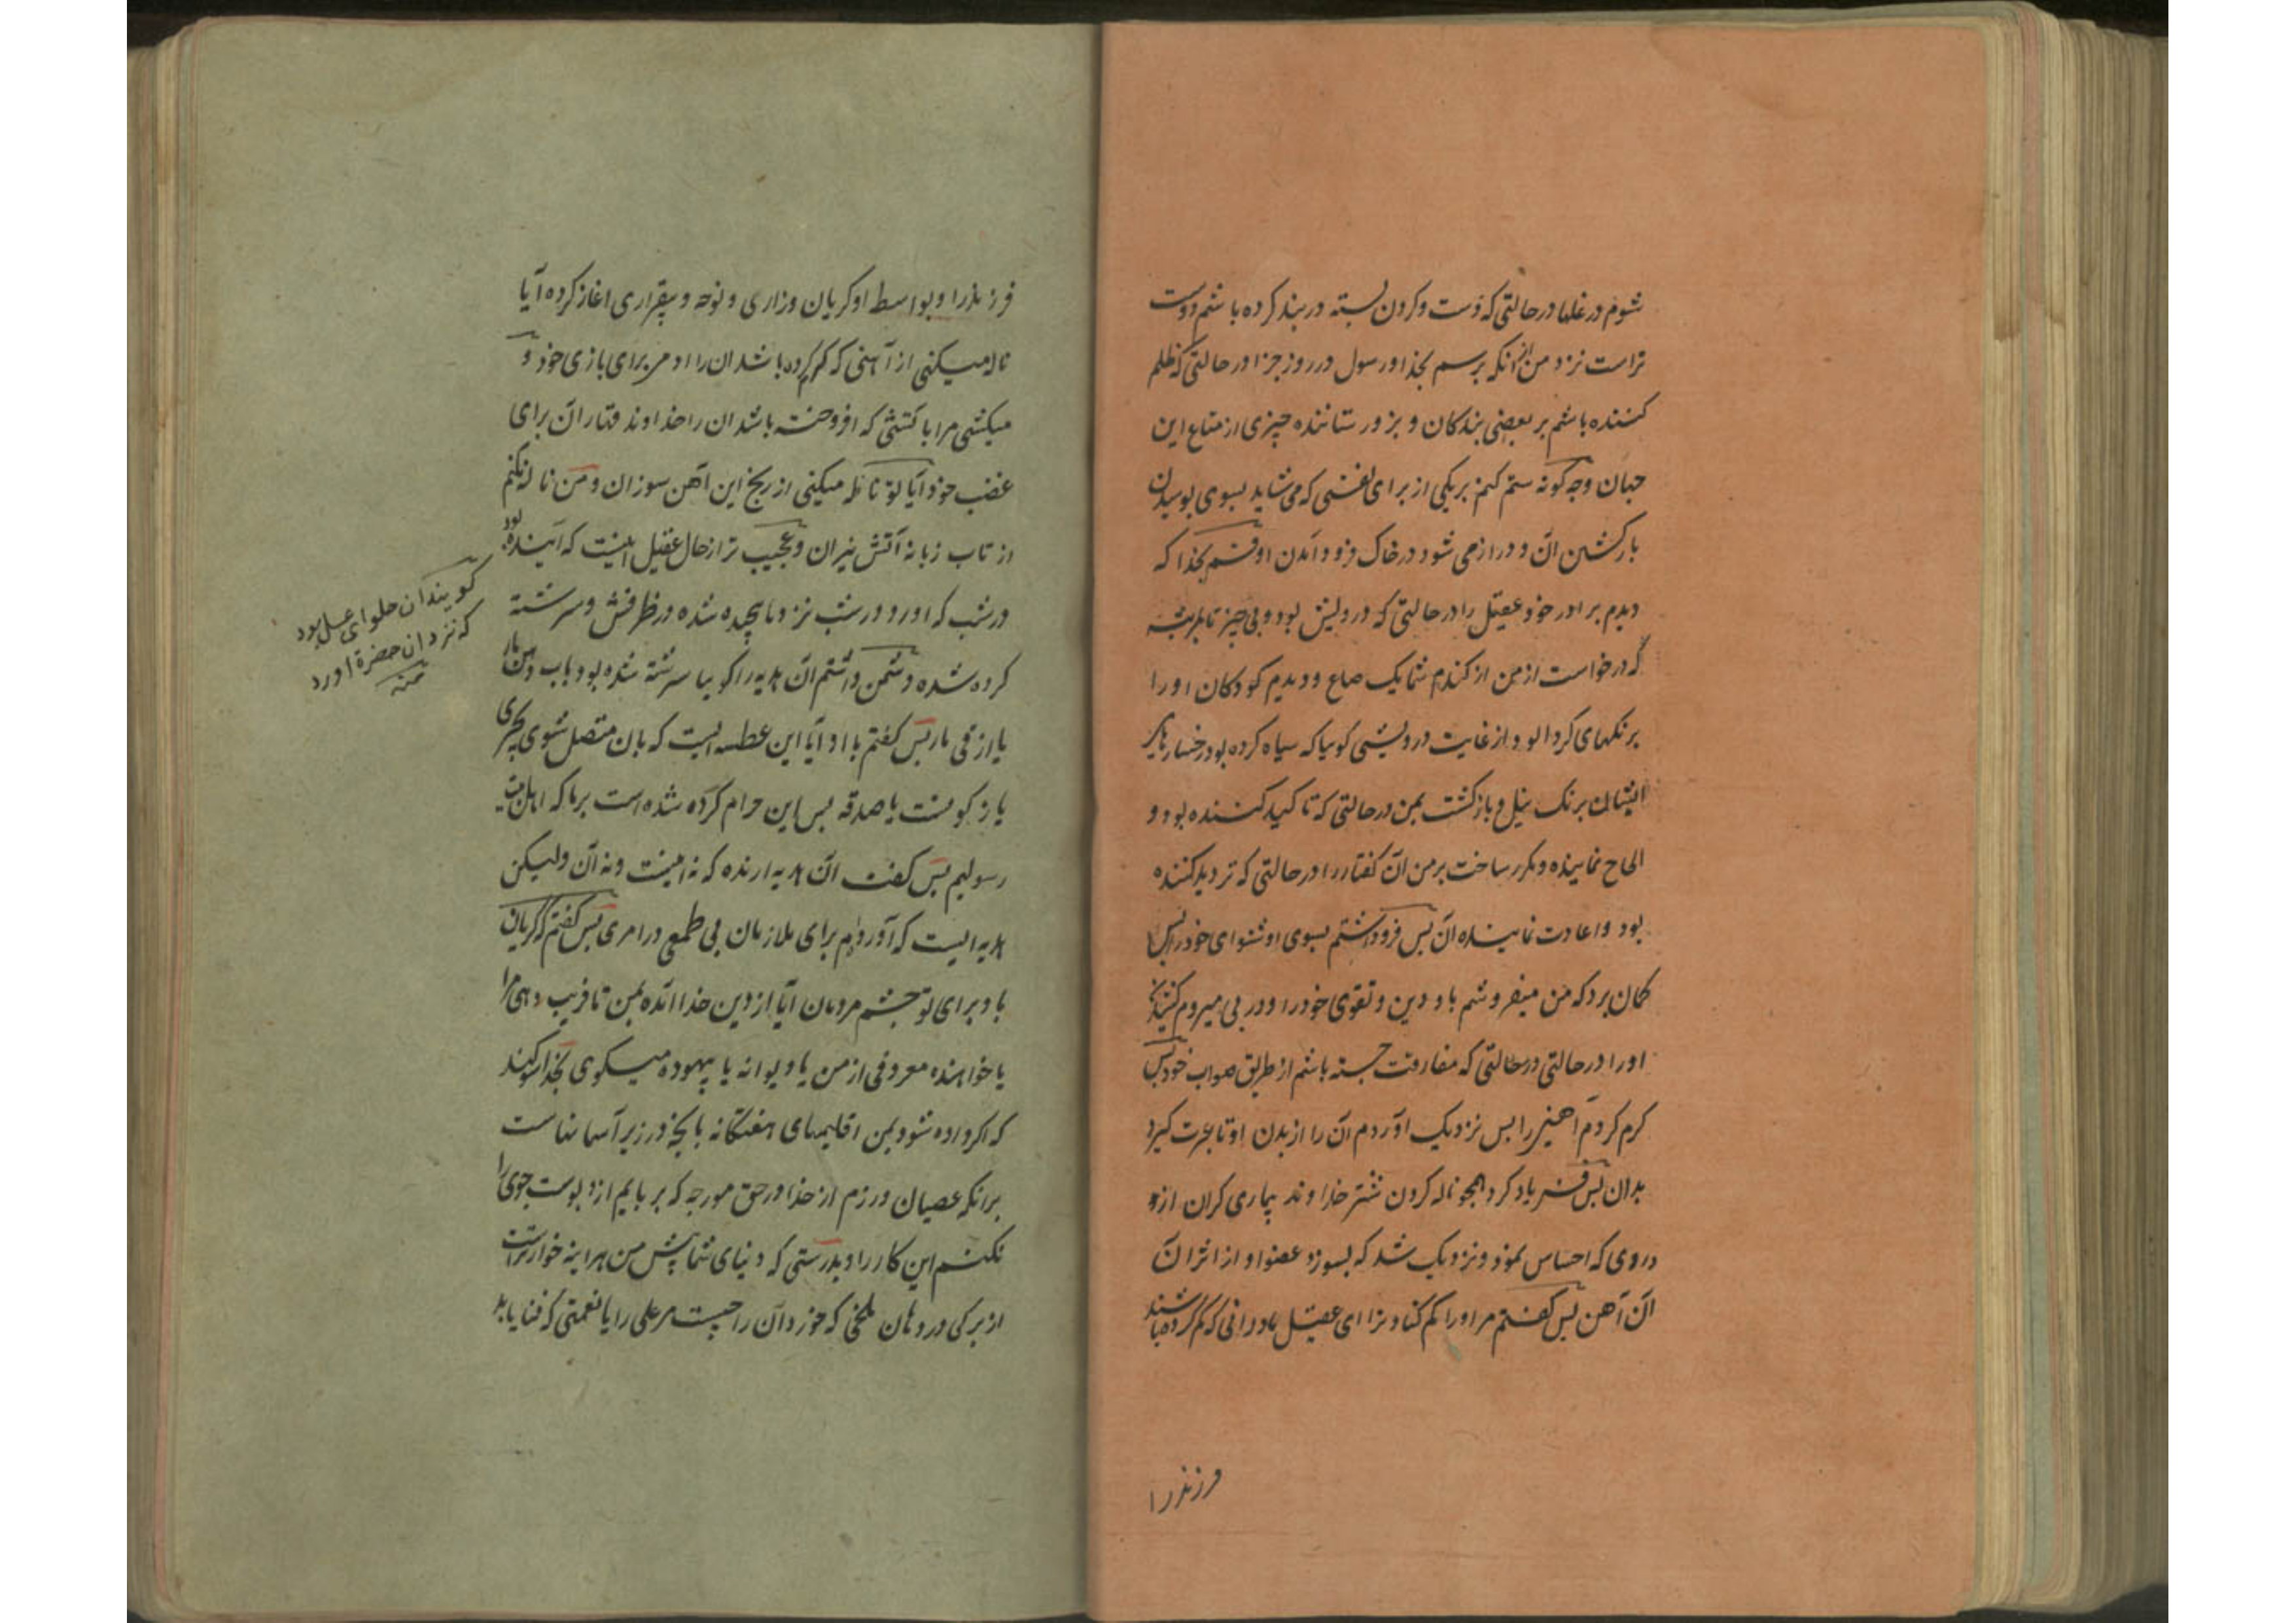 شوم در غلها در حالتی که دست و کردن بسته در بند کرده باشم دوست
تراست نزد من از انکه برسم بخدا و رسول در روز جزا در حالتی که ظلم
کننده باشم بر بعضی بندکان و بزور ستاننده چیزی از متاع این
جهان و چه کونه ستم کنم بریکی از برای نفسی که می شاید بسوی پوسیدن
بازکشتن آن و دراز می شود در خاک فرود آمدن او قسم بخدا که
دیدم برادر خود عقیل را در حالتی که درویش بود و بی چیز تا بمرتبه
که درخواست از من از کندم شما یک صاع و دیدم کودکان او را
برنکهای کردالود از غایت درویشی کویا که سیاه کرده بود رخسارهای
ایشان برنک نیل و بازکشت بمن در حالتی که تاکید کننده بود و
الحاح نماینده و مکرر ساخت بر من آن کفتار را در حالتی که تردید کننده
بود و اعادت نماینده آن پس فرو داشتم بسوی او شنوای خود را پس
کمان برد که من میفروشم باو دین و تقوی خود را و در پی میروم
او را در حالتی در حالتی که مفارقت جسته باشم از طریق صواب خود پس
کرم کردم آهنی را پس نزدیک آوردم آن را از بدن او تا عبرت کیرد
بدان پس فریاد کرد همچو ناله کردن شتر خداوند بیماری کران از
دردی که احساس نمود و نزدیک شد که بسوزد عضو او از اثر آن
آن آهن پس کفتم مر او را کم کناد ترا ای عقیل مادرانی که کم کرده باشند
فرزند را
فرزند را و بواسط او کریان وزاری و نوحه و بیقراری اغاز کرده آیا
ناله میکنی از آهنی که کرم کرده باشد ان را ادمی برای بازی خود و
میکشی مرا باتشی که افروخته باشد ان را خداوند قهار آن برای
غضب خود آیا تو ناله میکنی از رنج این آهن سوزان و من ناله نکنم
از تاب زبانه آتش نیران و عجیب تر از حال عقیل اینست که آینده بود
در شب که اورد در شب نزد ما پیچیده شده در ظرفش و سرشته
کرده شده دشمن داشتم آن هدیه را کویا سرشته شده بود باب دهن مار
یا از قی مار پس کفتم با او آیا این عطیه ایست که بان متصل شوی بچیزی
یا زکوتست یا صدقه پس این حرام کرده شده است بر ما که اهل بیت
رسولیم پس کفت آن هدیه ارنده که نه اینست و نه آن ولیکن
هدیه ایست که آورده ام برای ملازمان بی طمع در امری پس کفتم که کریان
باد برای تو چشم مردمان آیا از دین خدا آمده بمن تا فریب دهی مرا
یا خواهنده معروفی از من یا دیوانه یا بیهوده میکوی بخدا سوکند
که اکر داده شود بمن اقلیمهای هفتکانه با بچه در زیر آسمانهاست
برانکه عصیان ورزم از خدا در حق مورچه که بربایم ازو پوست جوی را
نکنم این کار را و بدرستی که دنیای شما پیش من هراینه خوارتر است
از برکی در دهان ملخی که خورد آن را چیست مر علی را با نعمتی که فنا یابد
کویند ان حلوای عسل بود
که نزد ان حضرة اورد
منه